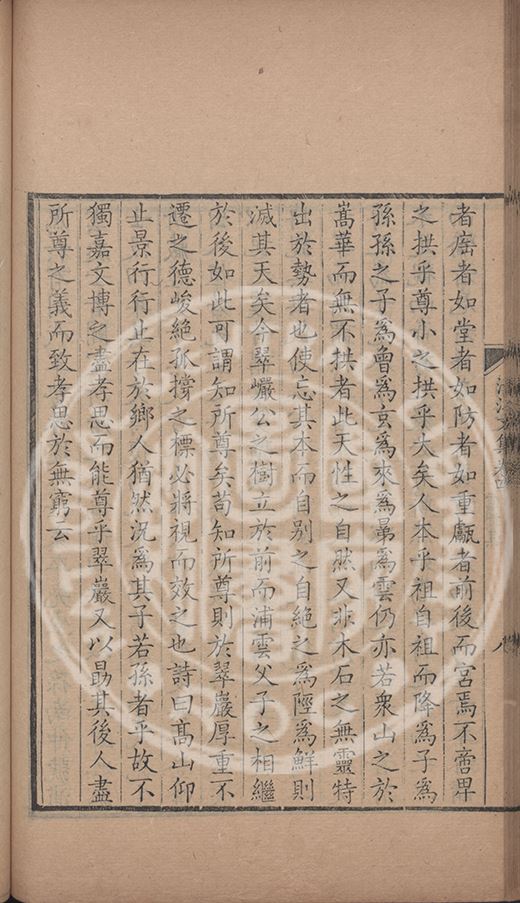 者㕎者如堂者如防者如重甗者前後而宮焉不啻卑
之拱乎尊小之拱乎大矣人本乎祖自祖而降爲子爲
孫孫之子爲曾爲玄爲來爲晜爲雲仍亦若衆山之於
嵩華而無不拱者此天性之自然又非木石之無靈特
出於勢者也使忘其本而自别之自絶之爲陘爲鮮則
滅其天矣今翠巖公之樹立於前而浦雲父子之相繼
於後如此可謂知所尊矣苟知所尊則於翠巖厚重不
遷之德峻絶孤撐之標必將視而效之也詩曰髙山仰
止景行行止在於鄉人猶然況爲其子若孫者乎故不
獨嘉文博之盡孝思而能尊乎翠巖又以勗其後人盡
所尊之義而致孝思於無窮云
文集卷
八